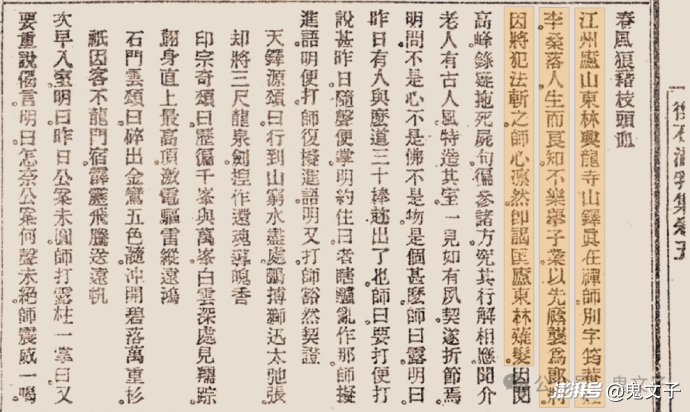 春風狼藉枝頭血
江州廬山東林興龍寺山鐸真在禪師別字筠菴
李桑落人生而良知不樂舉子業以先廕襲為郎將
因將犯法斬之師心凜然即謁匡廬東林薙髮因閱
高峰錄疑拖死屍句徧參諸方究其行解相應聞介
老人有古人風特造其室一見如有夙契遂折節焉
明問不是心不是佛不是物是個甚麼師曰露明曰
昨日有人與麼道三十棒趂出了也師曰要打便打
說甚昨日隨聲便掌明約住曰者瞎驢亂作那師擬
進語明便打師復擬進語明又打師豁然契證
天鐸源頌曰行到山窮水盡處鵬摶獅迅太弛張
却將三尺龍泉劍揑作還魂導魄香
印宗奇頌曰歷徧千峯與萬峯白雲深處見羺踪
翻身直上最高頂激電驅雷縱遠鴻
石門雲頌曰碎出金鸞五色髓沖開碧落萬重杉
祇因客不龍門宿霹靂飛騰送遠帆
次早入室明曰昨日公案未圓師打露柱一掌曰又
要重說偈言明曰怎奈公案何聲未絕師震威一喝
徑石滴乳集卷五
公众号
鬼文子
澎湃号@鬼文子